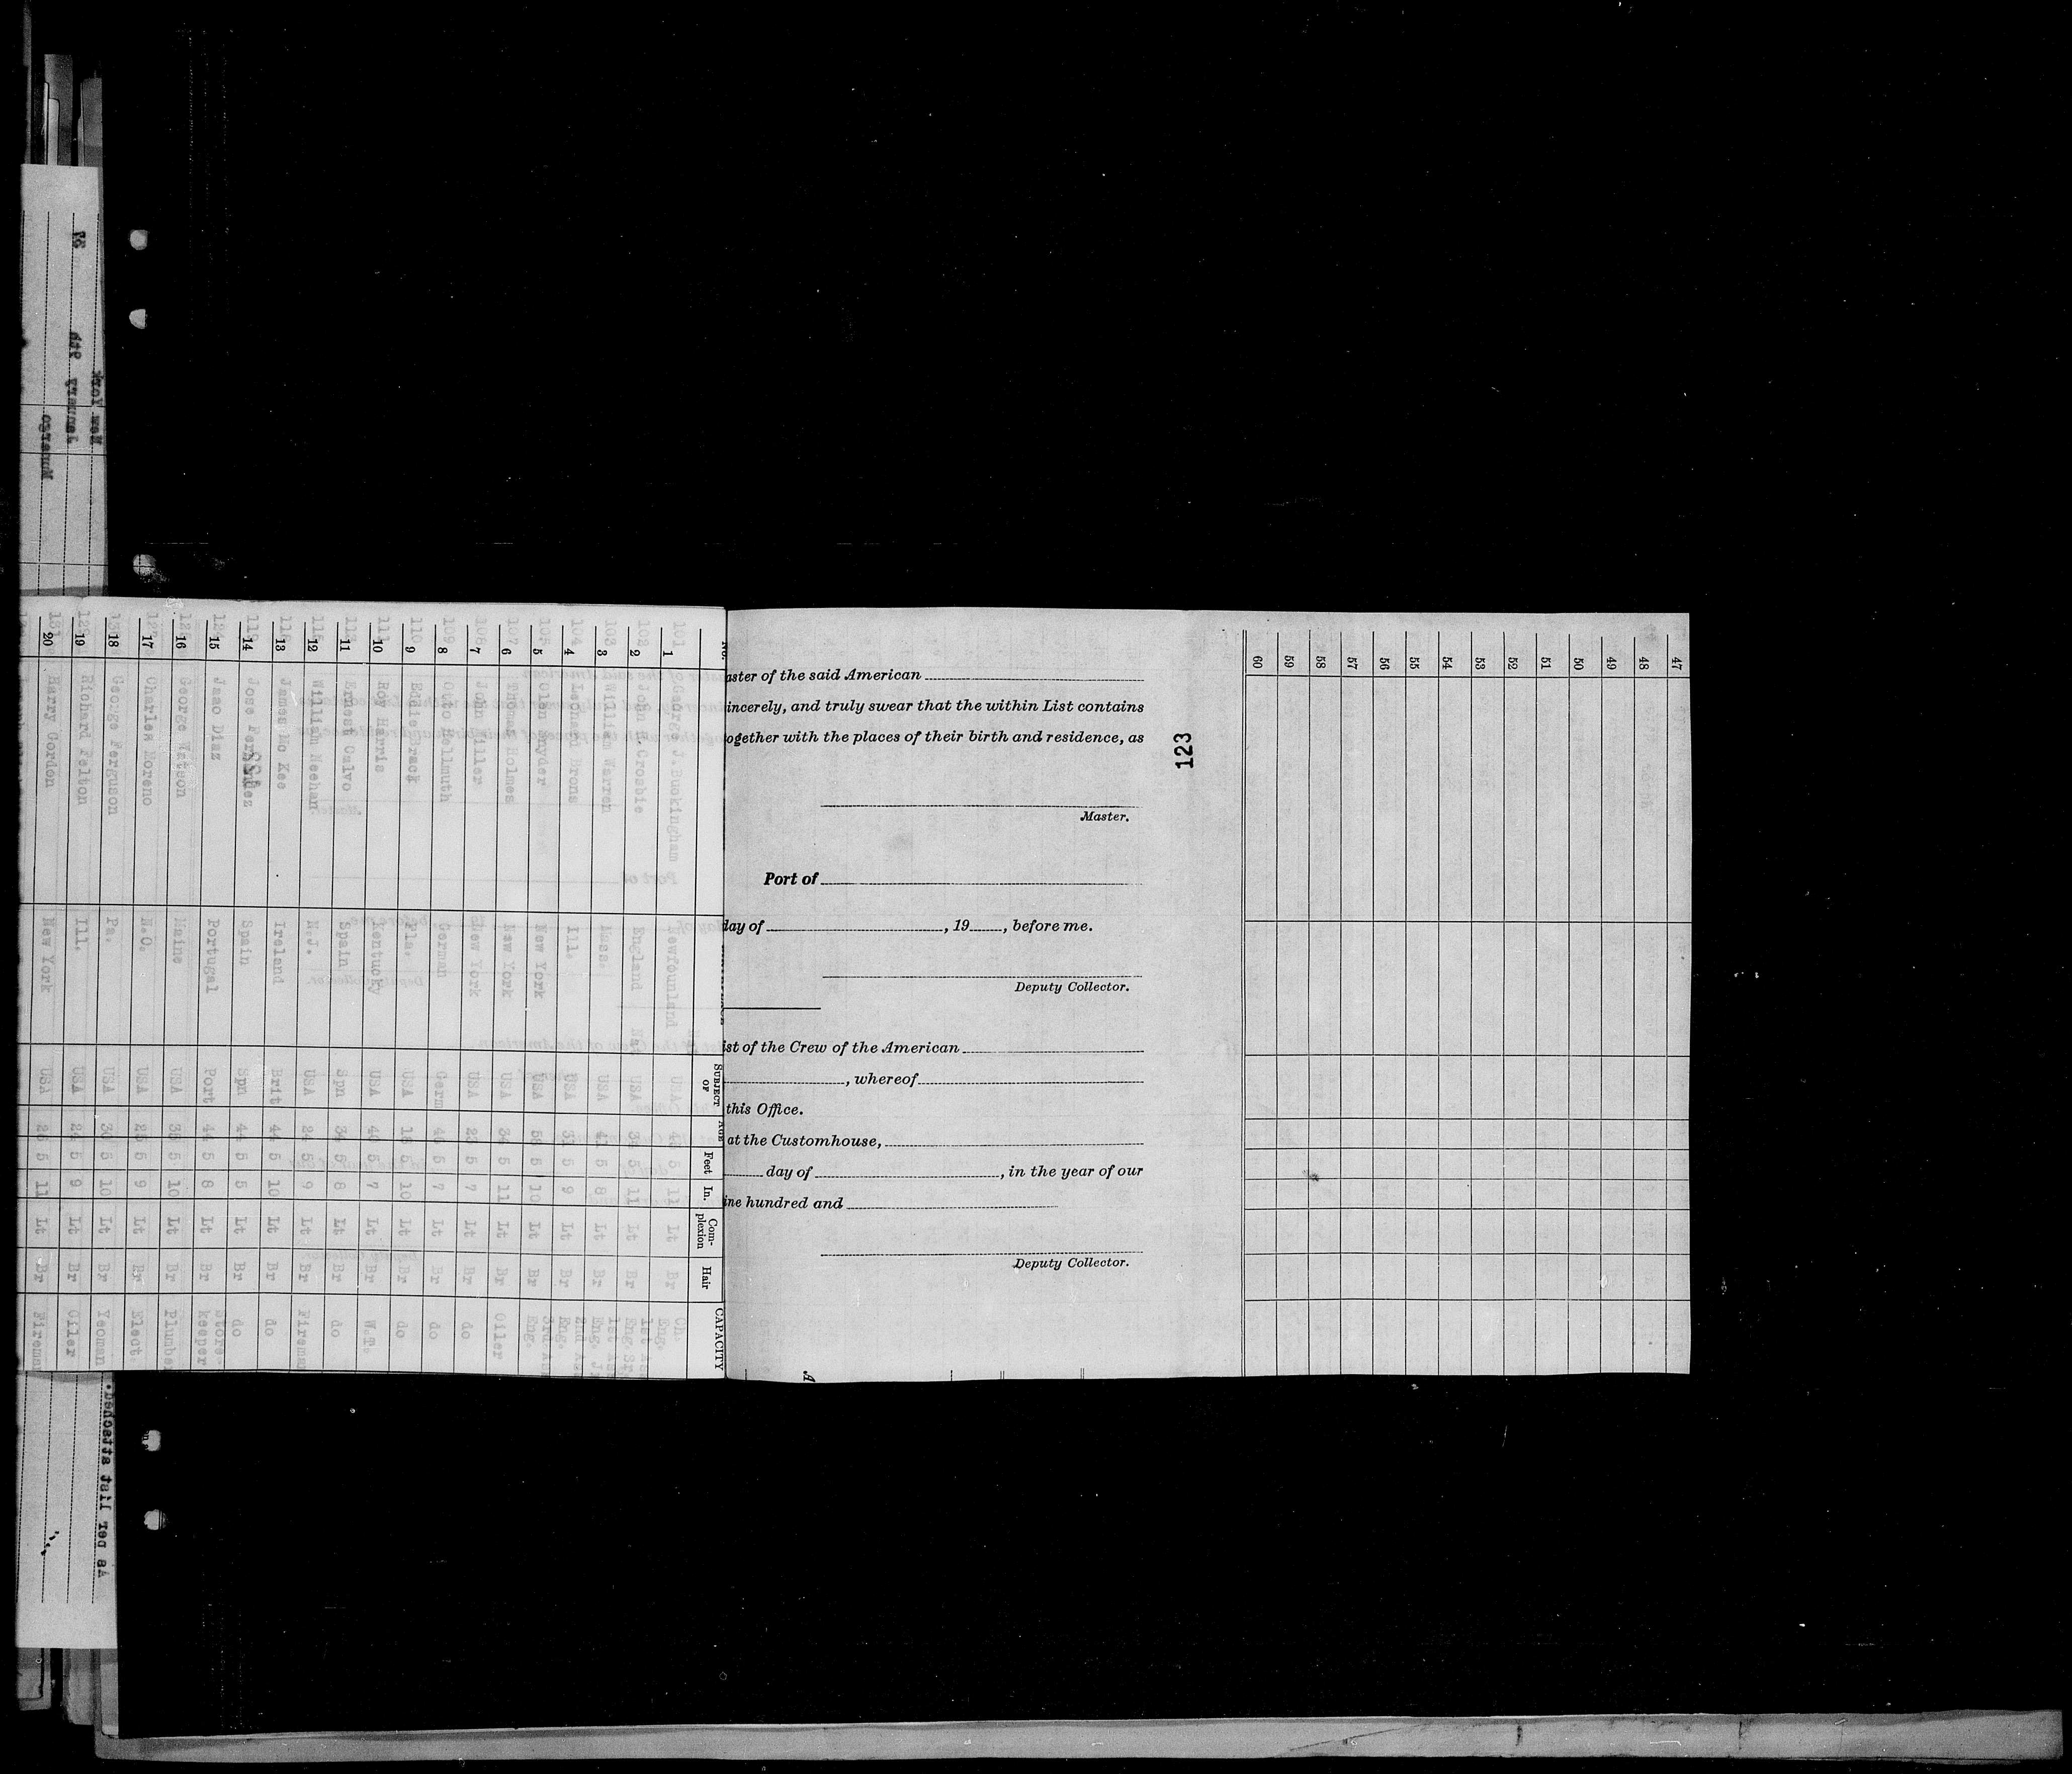 No. SUBJECT OF AGE Feet In. Com-plexion Hair CAPACITY
101 1 George J. Buckingham Newfounland USA 5 11 Lt Br Ch. Eng.
2 John Crosbie England USA 5 11 Lt Br
103 3 William Warren Mass. USA 5 8 Lt Br
104 4 Leonard Brons Ill. USA 5 9 Lt Br
5 Glen Snyder New York USA 58 5 10 Lt Br
107 6 Thomas Holmes New York USA 34 5 11 Lt Br Oiler
7 John Miller New York USA 23 5 7 Lt Br do
109 8 Otto Helmuth German Germ 5 7 Lt Br do
110 9 Eddie Brack Fla. USA 18 5 10 Lt Br do
10 Roy Harris Kentucky USA 5 7 Lt Br W.T.
11 Ernest Calvo Spain Spn 34 5 8 Lt Br do
12 William Meehan N.J. USA 24 5 9 Lt Br Fireman
13 James Mc Kee Ireland Brit 44 5 10 Lt Br do
14 Jose Spain Spn 44 5 5 Lt Br do
15 Jaao Diaz Portugal Port 44 5 8 Lt Br Store-keeper
16 George Watson Maine USA 5 10 Lt Br Plumber
17 Charles Moreno N.O. USA 5 9 Lt Br Elect.
18 George Ferguson Pa. USA 5 10 Lt Br Yeoman
19 Richard Felton Ill. USA 5 9 Lt Br Oiler
20 Harry Gordon New York USA 5 11 Lt Br Fireman
aster of the said American
incerely, and truly swear that the within List contains
ogether with the places of their birth and residence, as
123
Master.
Port of
day of , 19 , before me.
Deputy Collector.
ist of the Crew of the American
, whereof
this Office.
at the Customhouse,
day of , in the year of our
ine hundred and
Deputy Collector.
47
48
49
50
51
52
53
54
55
56
57
58
59
60
New York
January 9th
Munargo
As per list attached.